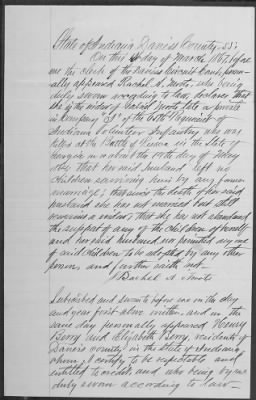 State of Indiana Daviess County, SS:
On this day of March 1867, before
me the clerk of the Daviess Circuit Court, person-
ally appeared Rachel A. who being
duly sworn according to law, declares that
she is the widow of late a private
in Company "I" of the 65th Regiment of
Indiana Volunteer Infantry who was
killed at the Battle of Resaca in the State of
Georgia on or about the 19th day of May
1864 that her said husband left no
children surviving him by any former
marriage; that since the death of her said
husband she has not married but still
remains a widow, that she has not abandoned
the support of any of the children of herself
and her said husband nor permitted any one
of said children to be adopted by any other
person, and further saith not.
Rachel A
Subscribed and sworn to before me on the day
and year first above written, and on the
same day personally appeared Henry
Berry and Elizabeth Berry, residents of
Daviess county in the State of Indiana
whom I certify to be respectable and
entitled to credit, and who being by me
duly sworn according to law